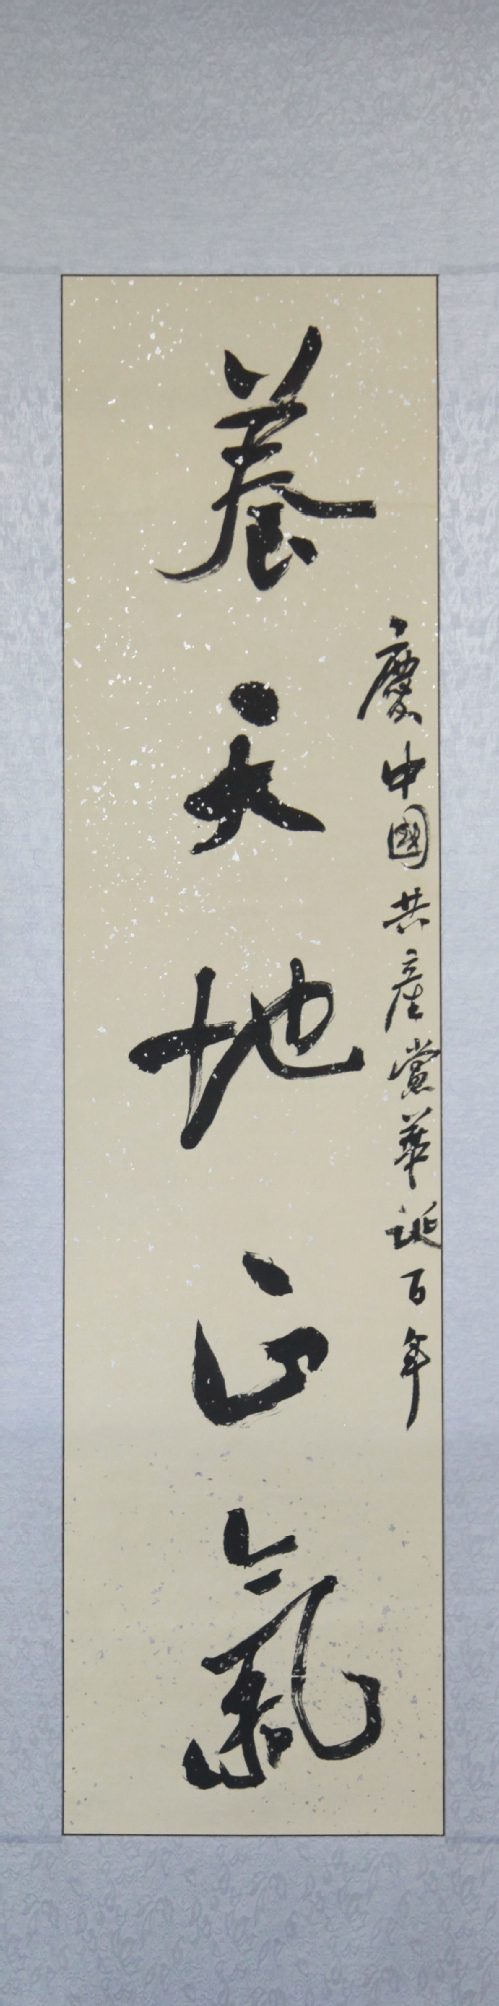 慶中國共産黨華誕百年
養天地正氣